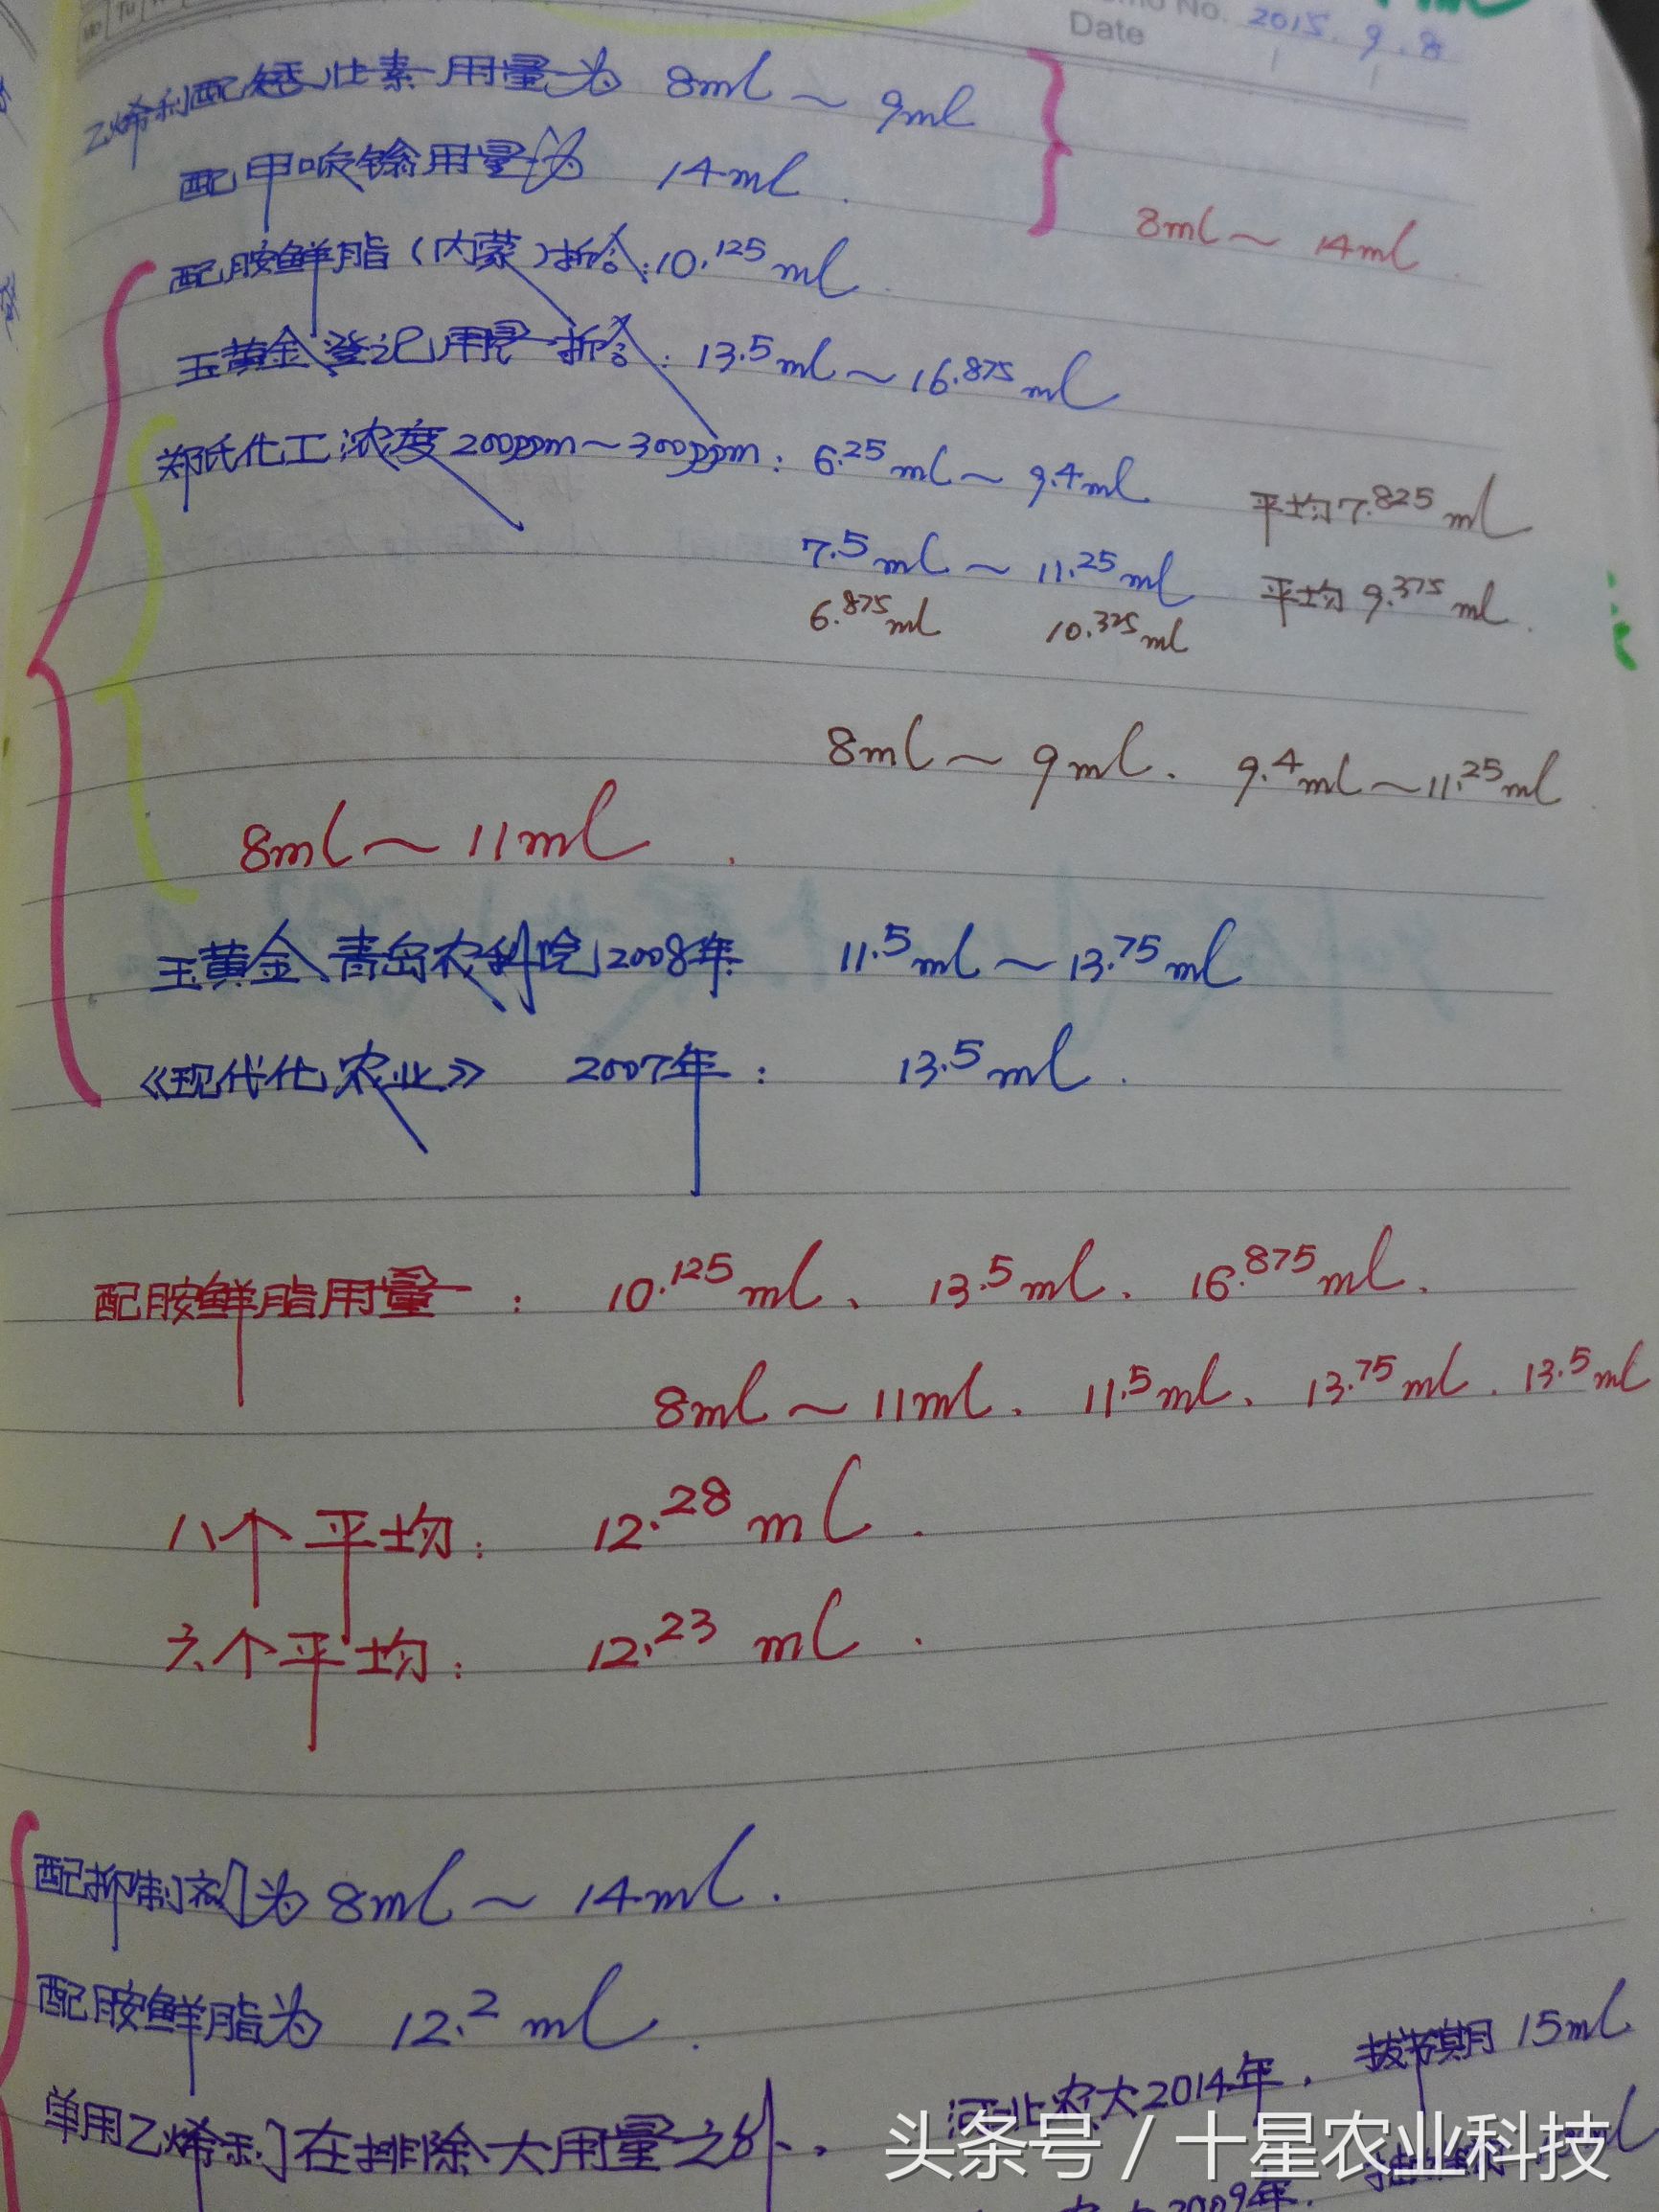 No. 2015. 9. 8
Date
乙烯利配矮壮素用量为 8ml～9ml
配甲哌鎓用量为 14ml.
8ml～14ml.
配胺鲜脂(内蒙)折合:10.125ml.
玉黄金登记用量折合:13.5ml～16.875ml
郑氏化工:浓度200ppm～300ppm:6.25ml～9.4ml 平均7.825ml
7.5ml～11.25ml 平均9.375ml.
6.875ml 10.325ml
8ml～9ml. 9.4ml～11.25ml.
8ml～11ml.
玉黄金、青岛农科院2008年 11.5ml～13.75ml
《现代化农业》 2007年: 13.5ml.
配胺鲜脂用量: 10.125ml、13.5ml、16.875ml.
8ml～11ml、11.5ml、13.75ml、13.5ml
八个平均: 12.28ml.
六个平均: 12.23ml.
配抑制剂为8ml～14ml.
配胺鲜脂为 12.2ml.
河北农大2014年, 拔节期15ml
单用乙烯利在排除大用量之外,
2009年,
头条号/十星农业科技